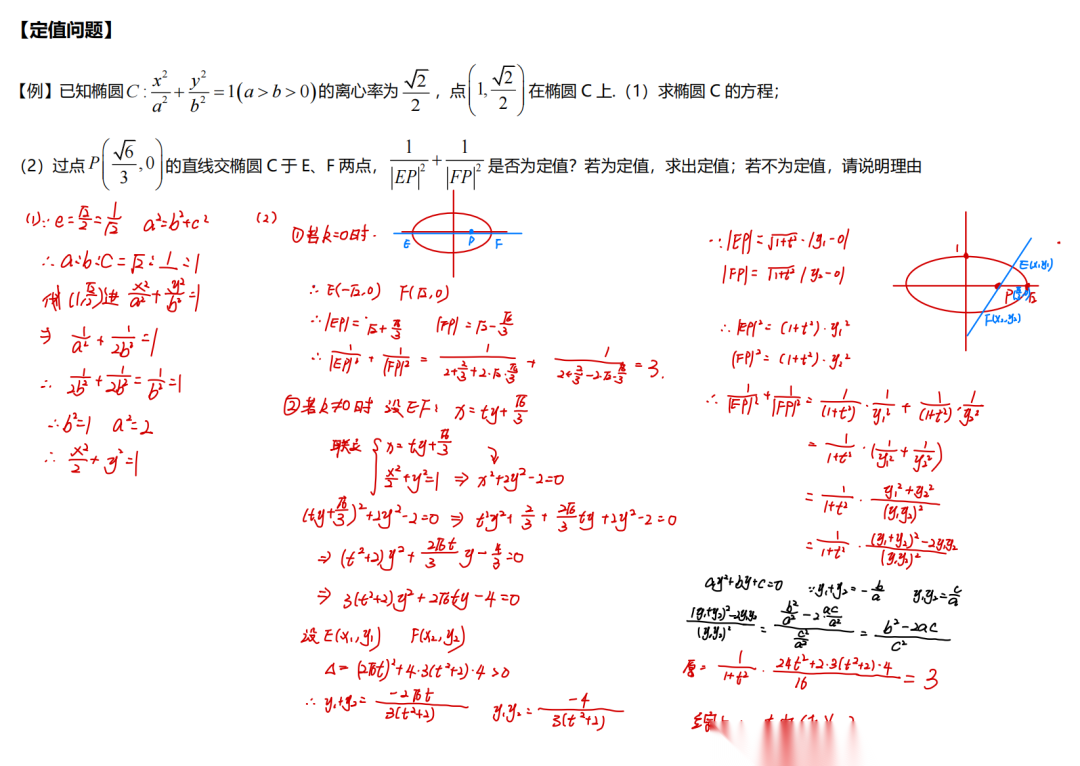 【定值问题】
【例】已知椭圆 C : x²/a² + y²/b² = 1(a > b > 0)的离心率为 √2/2 ，点 (1, √2/2) 在椭圆 C 上.（1）求椭圆 C 的方程；
（2）过点 P(√6/3, 0) 的直线交椭圆 C 于 E、F 两点， 1/|EP|² + 1/|FP|² 是否为定值？若为定值，求出定值；若不为定值，请说明理由
(1)∵ e = √2/2 = 1/√2 a² = b² + c²
∴ a:b:c = √2:1:1
(1, √2/2)进 x²/a² + y²/b² = 1
⇒ 1/a² + 1/2b² = 1
∴ 1/2b² + 1/2b² = 1/b² = 1
∴ b² = 1 a² = 2
∴ x²/2 + y² = 1
(2)
①若k=0时.
E P F
∴ E(-√2,0) F(√2,0)
∴ |EP| = √2 + √6/3 |FP| = √2 - √6/3
∴ 1/|EP|² + 1/|FP|² = 1/(2+2/3+2·√2·√6/3) + 1/(2+2/3-2·√2·√6/3) = 3.
②若k≠0时 设EF: x = ty + √6/3
联立 { x = ty + √6/3
x²/2 + y² = 1 ⇒ x² + 2y² - 2 = 0
(ty + √6/3)² + 2y² - 2 = 0 ⇒ t²y² + 2/3 + 2√6/3 ty + 2y² - 2 = 0
⇒ (t²+2)y² + 2√6t/3 y - 4/3 = 0
⇒ 3(t²+2)y² + 2√6ty - 4 = 0
设E(x₁,y₁) F(x₂,y₂)
Δ = (2√6t)² + 4·3(t²+2)·4 > 0
∴ y₁+y₂ = -2√6t/3(t²+2) y₁y₂ = -4/3(t²+2)
∵ |EP| = √1+t² · |y₁-0|
|FP| = √1+t² |y₂-0|
1 E(x₁,y₁)
P √2
F(x₂,y₂)
∴ |EP|² = (1+t²)·y₁²
|FP|² = (1+t²)·y₂²
∴ 1/|EP|² + 1/|FP|² = 1/(1+t²) · 1/y₁² + 1/(1+t²) · 1/y₂²
= 1/1+t² · (1/y₁² + 1/y₂²)
= 1/1+t² · y₁²+y₂²/(y₁y₂)²
= 1/1+t² · (y₁+y₂)²-2y₁y₂/(y₁y₂)²
ay²+by+c=0 ∵ y₁+y₂ = -b/a y₁y₂ = c/a
(y₁+y₂)²-2y₁y₂/(y₁y₂)² = (b²/a² - 2·ac/a²)/(c²/a²) = b²-2ac/c²
原 = 1/1+t² · 24t²+2·3(t²+2)·4/16 = 3